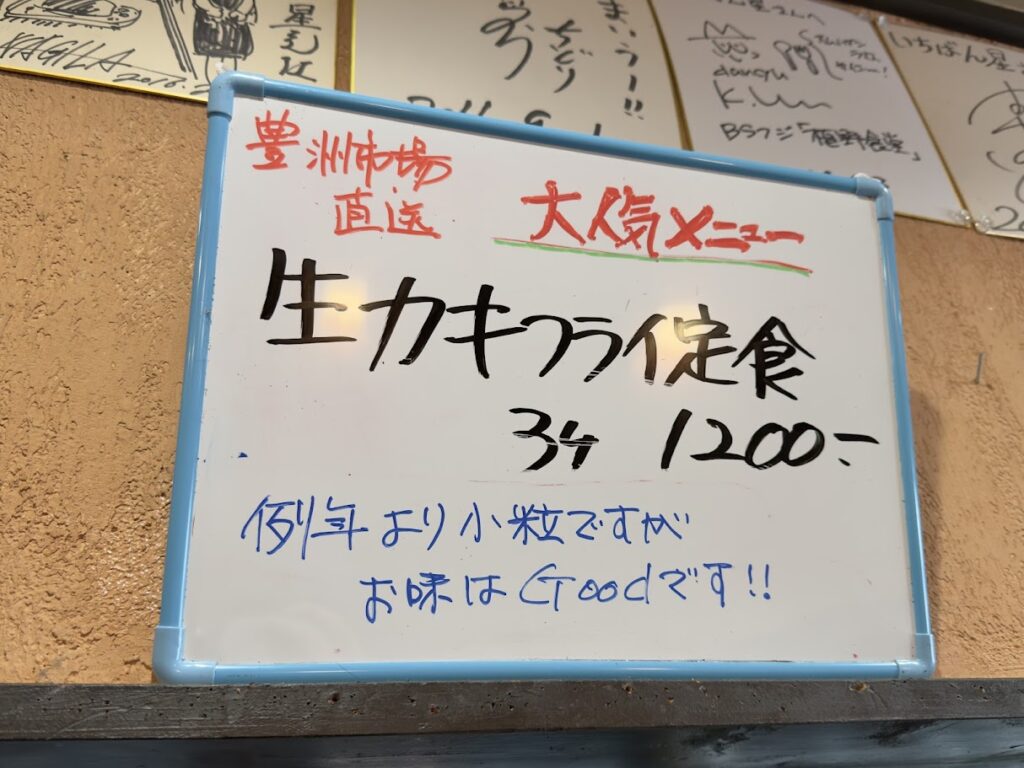 星
KAGILA
まいうー!!
いちばん星
BSフジ「
豊洲市場
直送
大人気メニュー
生カキフライ定食
3ケ 1200-
例年より小粒ですが
お味はGoodです!!